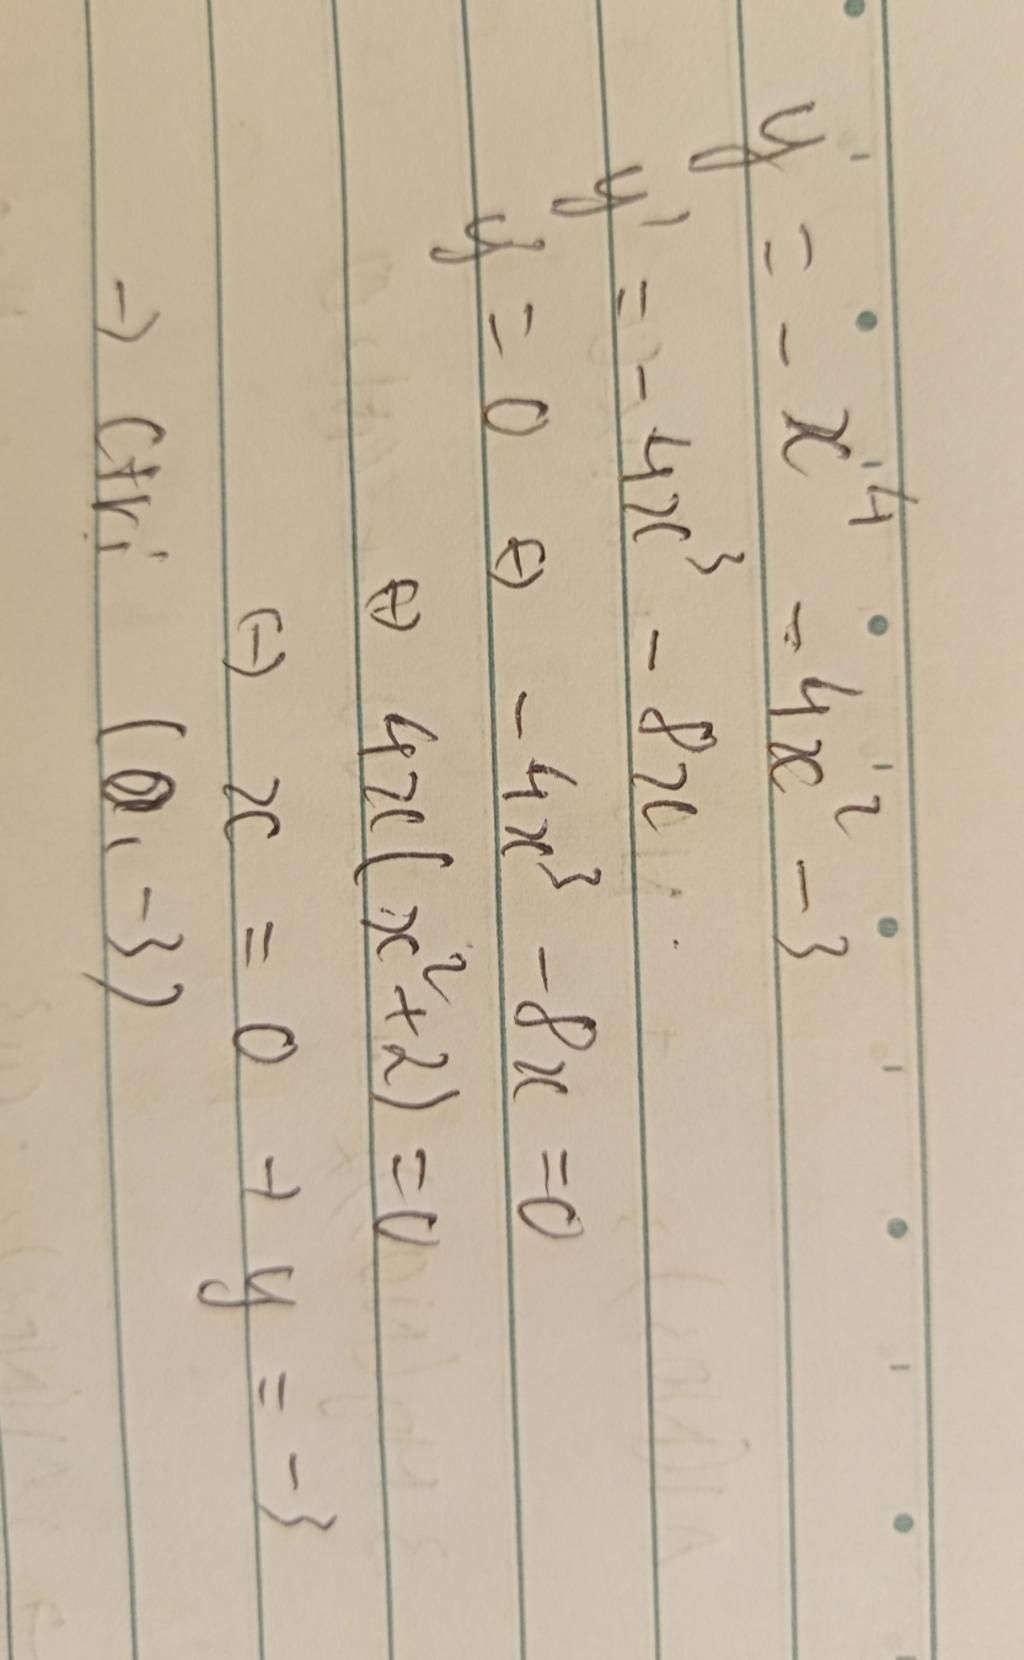 y = - x⁴ - 4x² - 3
y' = - 4x³ - 8x
y = 0 ↔ - 4x³ - 8x = 0
↔ 4x(x² + 2) = 0
↔ x = 0 → y = -3
→ (0, -3)